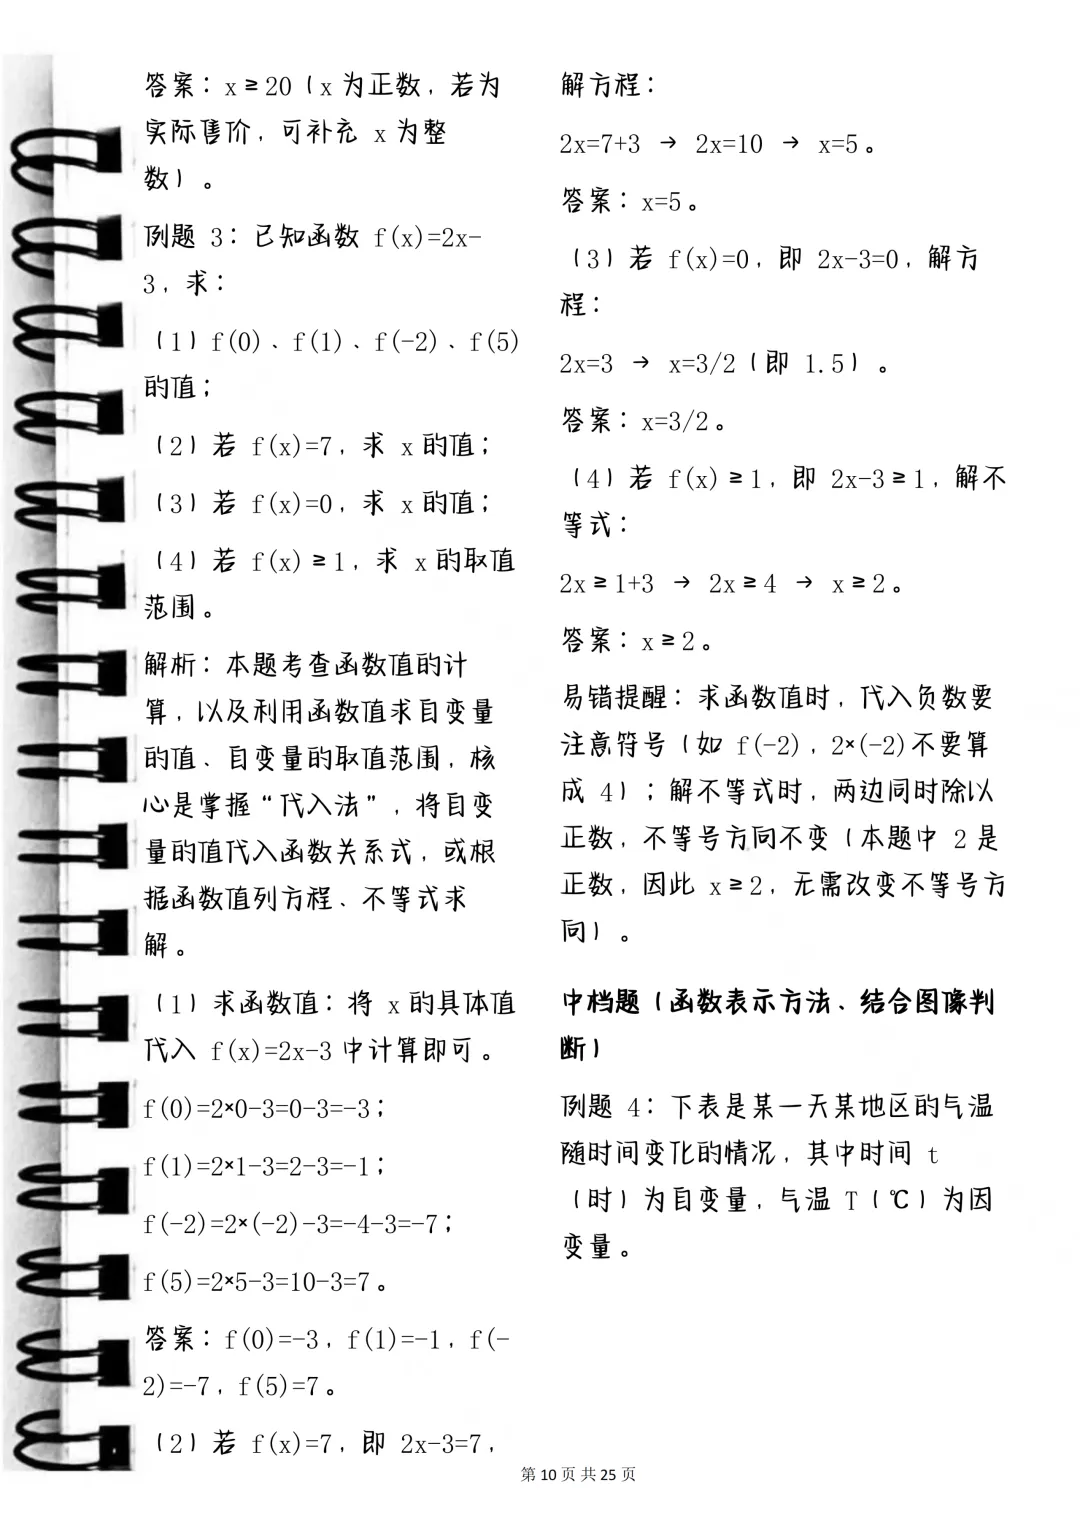 答案：x≥20（x 为正数，若为
实际售价，可补充 x 为整
数）。
例题 3：已知函数 f(x)=2x-
3，求：
（1）f(0)、f(1)、f(-2)、f(5)
的值；
（2）若 f(x)=7，求 x 的值；
（3）若 f(x)=0，求 x 的值；
（4）若 f(x)≥1，求 x 的取值
范围。
解析：本题考查函数值的计
算，以及利用函数值求自变量
的值、自变量的取值范围，核
心是掌握“代入法”，将自变
量的值代入函数关系式，或根
据函数值列方程、不等式求
解。
（1）求函数值：将 x 的具体值
代入 f(x)=2x-3 中计算即可。
f(0)=2×0-3=0-3=-3；
f(1)=2×1-3=2-3=-1；
f(-2)=2×(-2)-3=-4-3=-7；
f(5)=2×5-3=10-3=7。
答案：f(0)=-3，f(1)=-1，f(-
2)=-7，f(5)=7。
（2）若 f(x)=7，即 2x-3=7，
解方程：
2x=7+3 → 2x=10 → x=5。
答案：x=5。
（3）若 f(x)=0，即 2x-3=0，解方
程：
2x=3 → x=3/2（即 1.5）。
答案：x=3/2。
（4）若 f(x)≥1，即 2x-3≥1，解不
等式：
2x≥1+3 → 2x≥4 → x≥2。
答案：x≥2。
易错提醒：求函数值时，代入负数要
注意符号（如 f(-2)，2×(-2)不要算
成 4）；解不等式时，两边同时除以
正数，不等号方向不变（本题中 2 是
正数，因此 x≥2，无需改变不等号方
向）。
中档题（函数表示方法、结合图像判
断）
例题 4：下表是某一天某地区的气温
随时间变化的情况，其中时间 t
（时）为自变量，气温 T（℃）为因
变量。
第 10 页 共 25 页